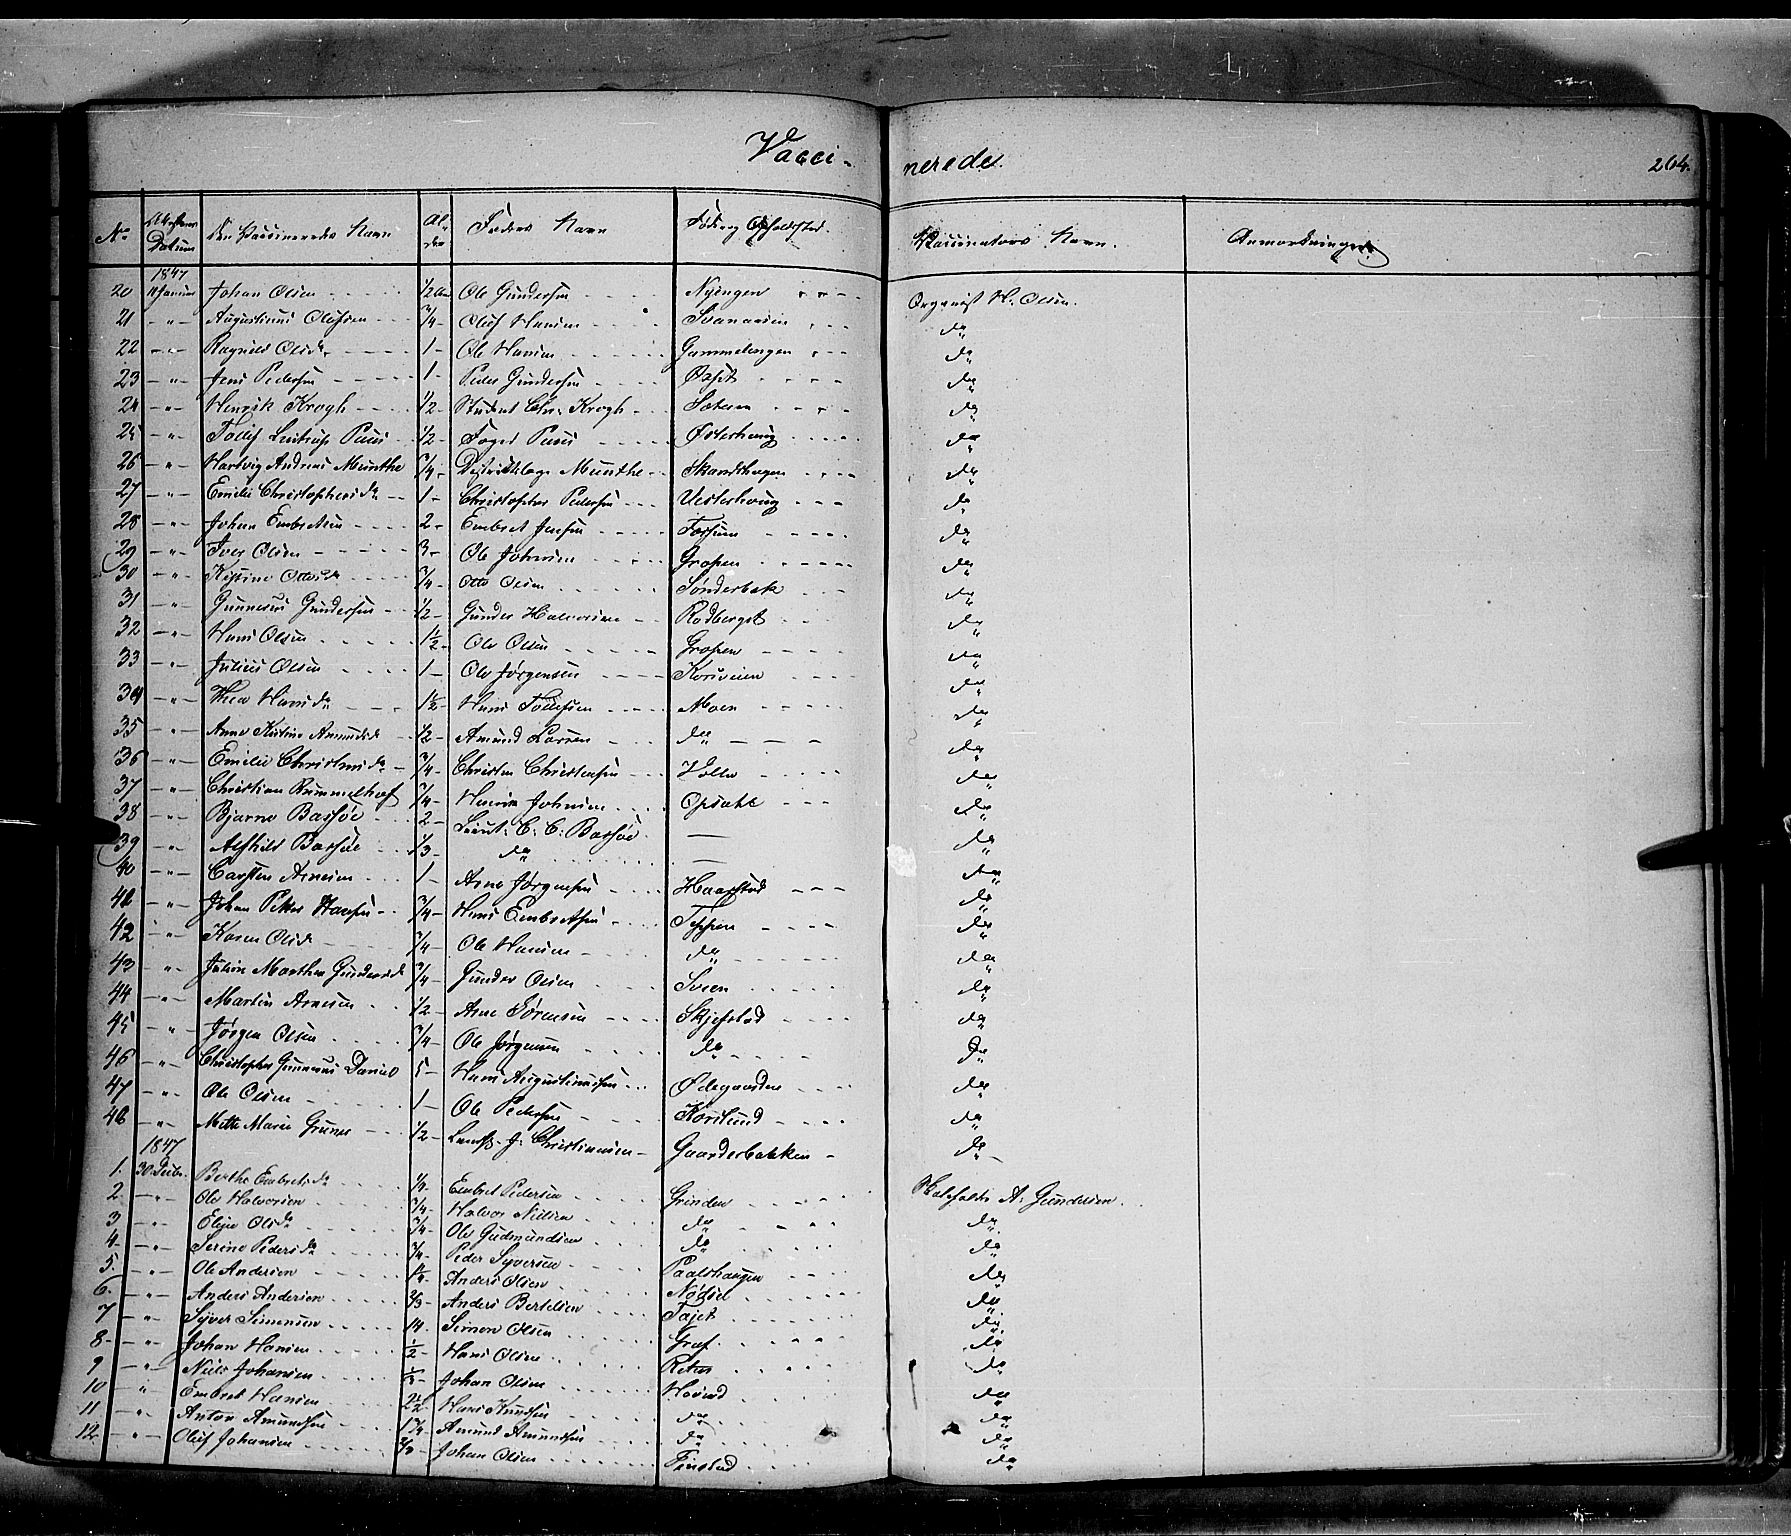 Vacci- nerede. 264.
No Attestens Datum Den Vaccineredes Navn Alder Faders Navn Føde og Opholdsted Vaccinators Navn. Anmærkninger
1847
20 Januar Johan Olsen 1/2 Ole Gundersen Nyengen Organist H. Olsen.
21 -"- Augustinus Olufsen 3/4 Oluf Hansen Svanaasen do
22 -"- Ragnild Olsdr 1 Ole Hansen Gammelengen do
23 -"- Jens Pedersen 1 Peder Gundersen do
24 -"- Henrik Krogh 1/2 Student Chr. Krogh do
25 -"- Tollef Lintrup Paus 1/2 Foged Paus Østerhaug do
26 -"- Hartvig Andreas Munthe 3/4 Districtslæge Munthe Skandshagen do
27 -"- Emilie Christophersdr 1 Christopher Pedersen Vesterhaug do
28 -"- Johan Embretsen 2 Embret Jensen do
29 -"- Iver Olsen 3 Ole Johnsen Grosen do
30 -"- Ottosdr 3/4 Otto Olsen Sønderbak do
31 -"- Gunnerus Gundersen 1/2 Gunder Halvorsen Rødberget do
32 -"- Hans Olsen 1 1/2 Ole Olsen Grosen do
33 -"- Julius Olsen 1 Ole Jørgensen Korsveien do
34 -"- Thea Hansdr 1 1/2 Hans Tollefsen Moen do
35 -"- Anne Kistine Amundsd 1/2 Amund Larsen do do
36 -"- Emilie Christensdr 3/4 Christen Christensen Volla do
37 -"- Christian Rummelhof 3/4 Henrik Johnsen Opsahl do
38 -"- Bjarne Bassøe 2 Lieut. C. C. Bassøe — do
39 -"- Alfhild Bassøe 1/3 do — do
40 -"- Carsten Arnesen 1 Arne Jørgensen Haarstad do
41 -"- Johan Petter Hansen 3/4 Hans Embretsen Teppen do
42 -"- Karen Olsdr 3/4 Ole Hansen do do
43 -"- Julia Marthea Gundersd 3/4 Gunder Olsen Sveen do
44 -"- Martin Arnesen 1/2 Arne Sørensen Skjefstad do
45 -"- Jørgen Olsen 3/4 Ole Jørgensen do do
46 -"- Christopher Gunnerus Daniel 5 Hans Augustinussen Ødegaarden do
47 -"- Ole Olsen 1 Ole Pedersen Korslund do
48 -"- Mette Marie Grunes 1/2 J. Christiansen Gaarderbakken do
1847
1. 30 Decbr. Berthe Embretsdr 1/4 Embret Pedersen Grinden A. Gundersen.
2 -"- Ole Halvorsen 3/4 Halvor Nielsen do do
3 -"- Elise Olsdr 3/4 Ole Gudmundsen do do
4. -"- Serine Pedersdr 3/4 Peder Syversen Paalshaugen do
5. -"- Ole Andersen Anders Olsen Nødset do
6. -"- Anders Andersen 2/3 Anders Bertelsen Tajet do
7 -"- Syver Simensen 14 Simen Olsen Graf do
8 -"- Johan Hansen 1/2 Hans Olsen do
9 -"- Niels Johansen Johan Olsen Hovind do
10 -"- Embret Hansen 2 1/2 Hans Knudsen do do
11 -"- Anton Amundsen 1 3/4 Amund Amundsen do do
12 -"- Oluf Johansen 2/3 Johan Olsen Finstad do